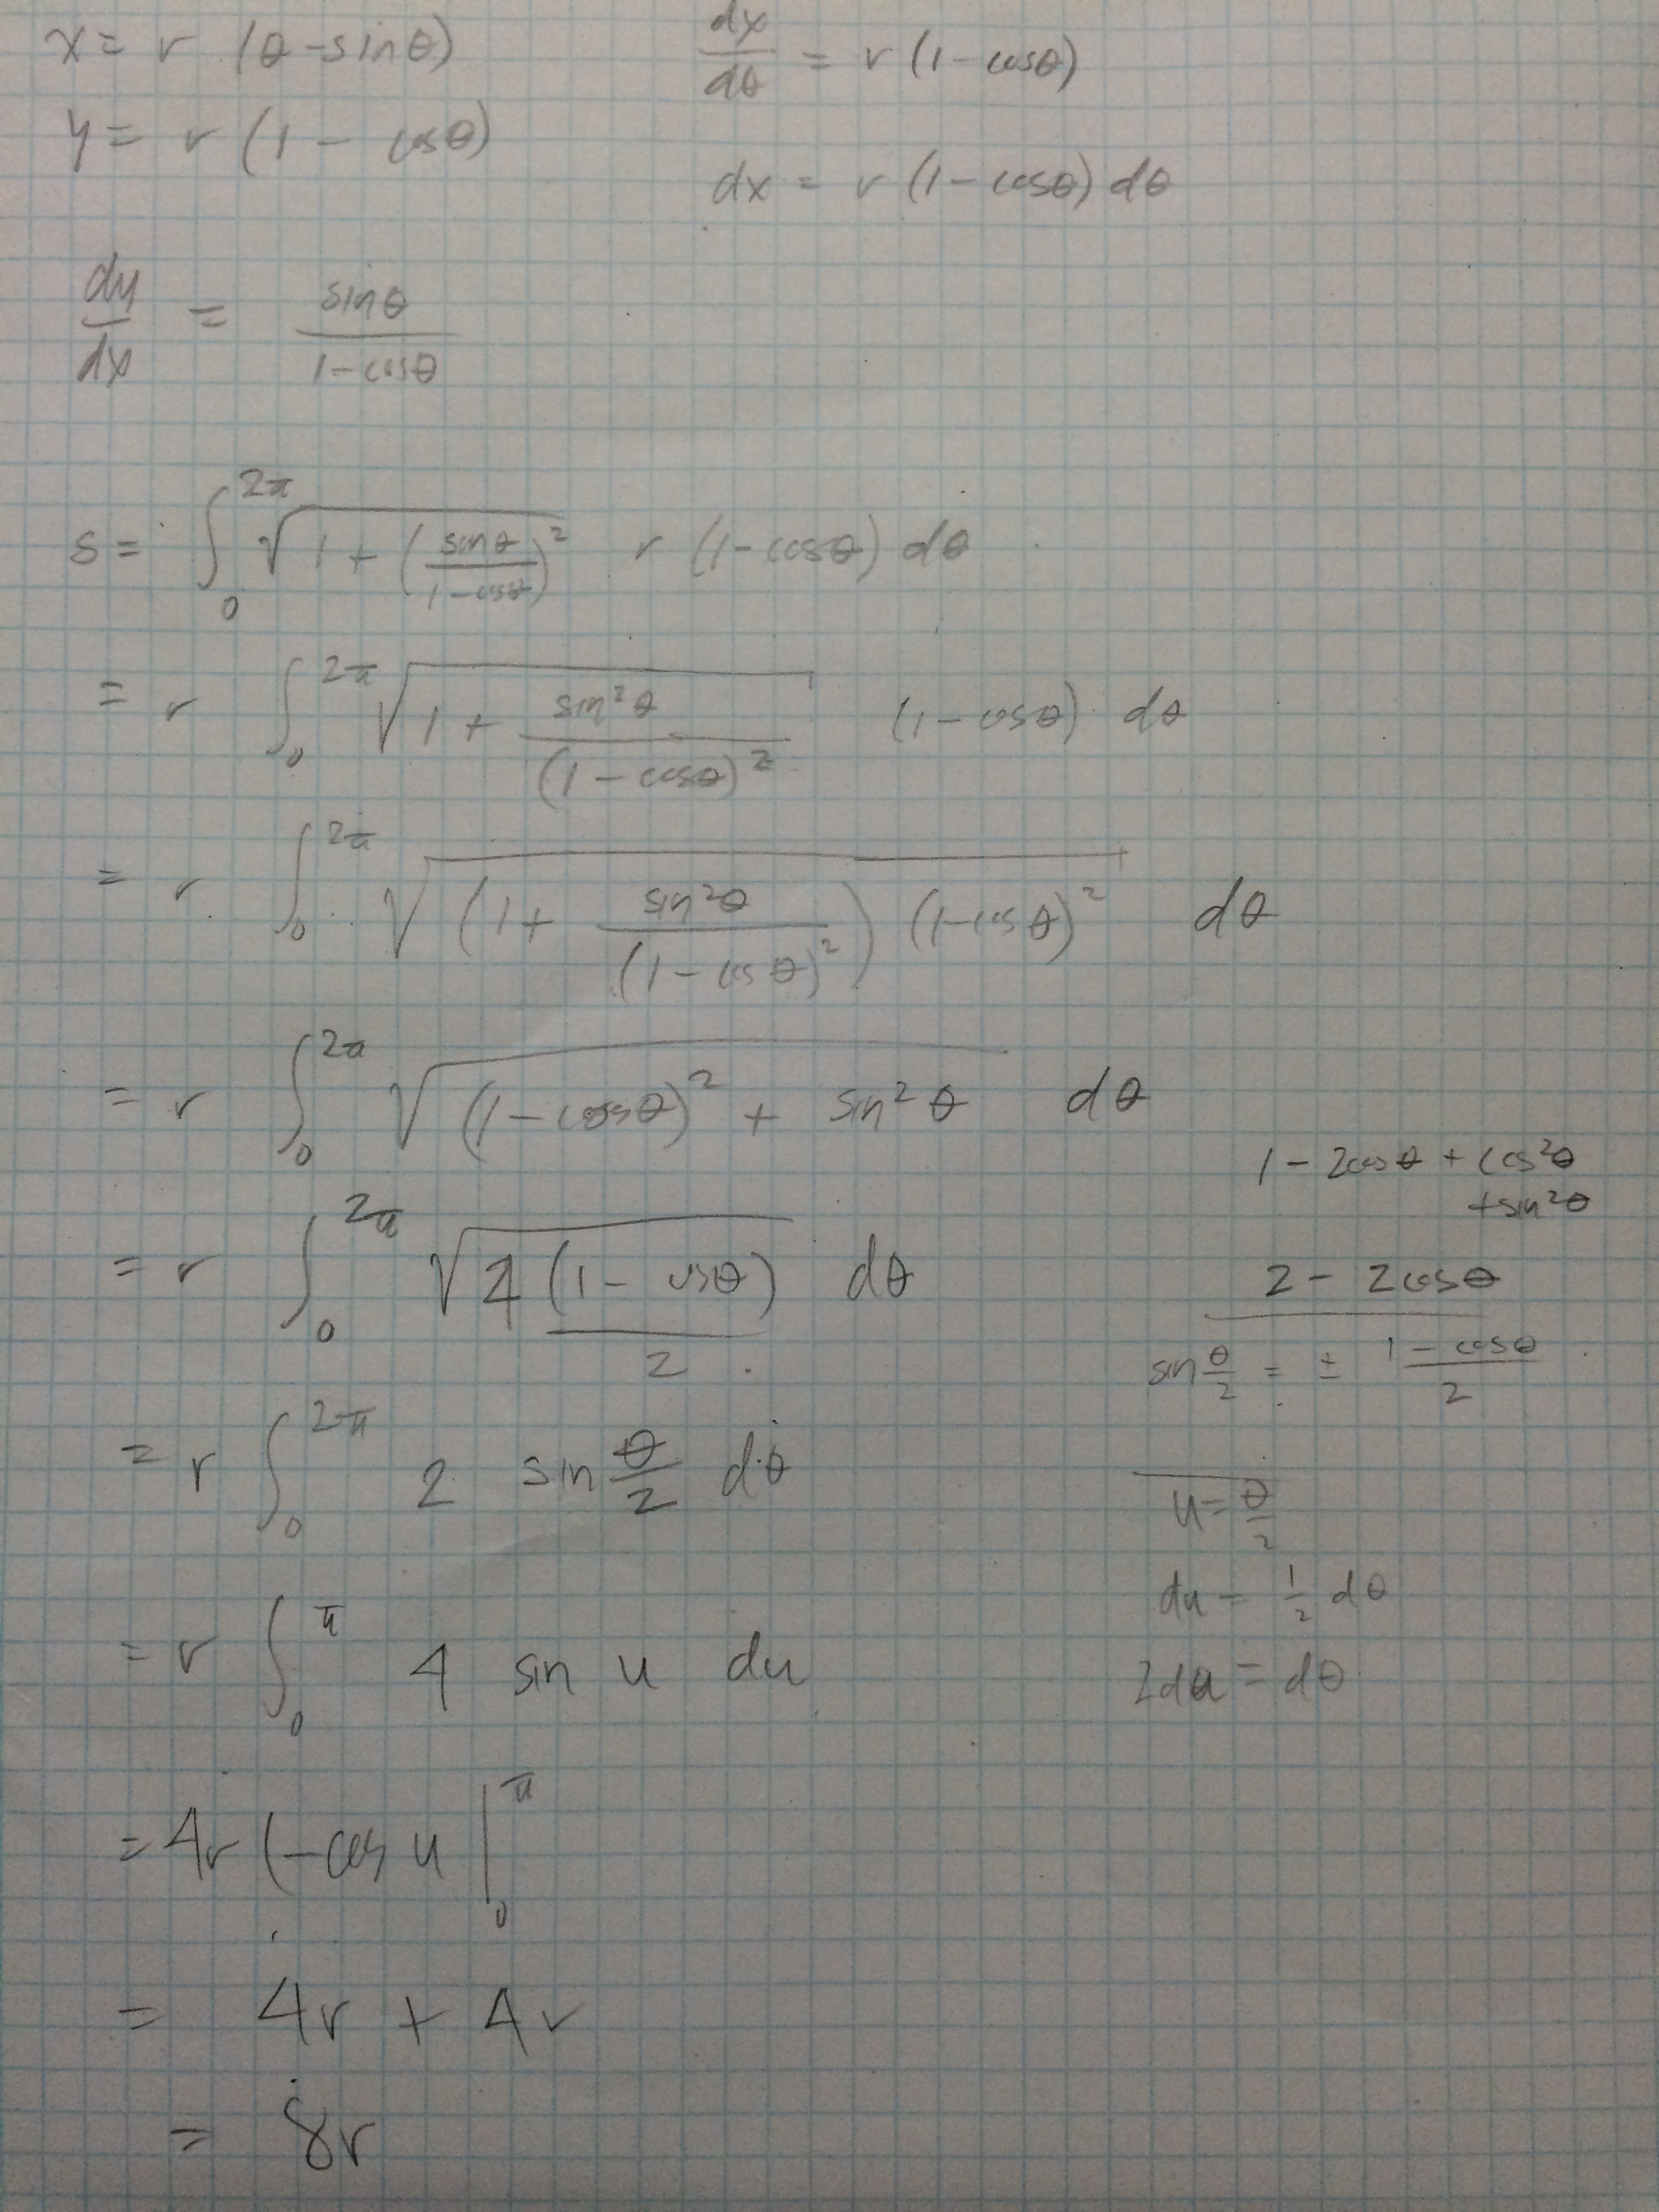 x = r (θ - sinθ)
dx/dθ = r (1 - cosθ)
y = r (1 - cosθ)
dx = r (1 - cosθ) dθ
dy/dx = sinθ/(1 - cosθ)
s = ∫₀^2π √(1 + (sinθ/(1 - cosθ))²) r (1 - cosθ) dθ
= r ∫₀^2π √(1 + sin²θ/(1 - cosθ)²) (1 - cosθ) dθ
= r ∫₀^2π √((1 + sin²θ/(1 - cosθ)²) (1 - cosθ)²) dθ
= r ∫₀^2π √((1 - cosθ)² + sin²θ) dθ
1 - 2cosθ + cos²θ
+ sin²θ
= r ∫₀^2π √(4 (1 - cosθ)/2) dθ
2 - 2cosθ
sin θ/2 = ± (1 - cosθ)/2
= r ∫₀^2π 2 sin θ/2 dθ
u = θ/2
du = 1/2 dθ
= r ∫₀^π 4 sin u du
2du = dθ
= 4r (-cos u |₀^π
= 4r + 4r
= 8r